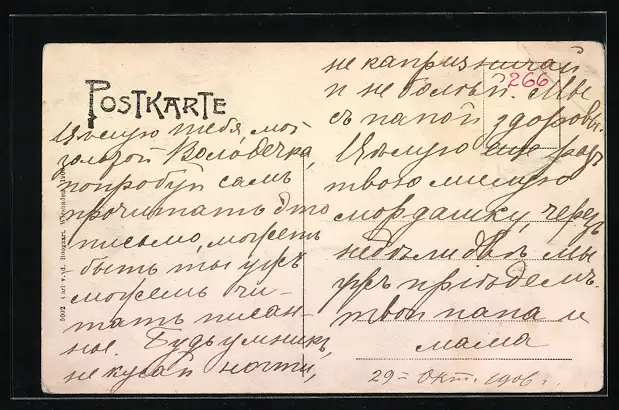 POSTKARTE
266
Цѣлую тебя, мой
золотой Володечка,
попробуй самъ
прочитать это
письмо, можетъ
быть ты ужъ
можешь чи-
тать писан-
ное. Будь умникъ,
не кусай ногти,
не капризничай
и не болѣй. Мы
съ папой здоровы.
Цѣлую еще разъ
твою милую
мордашку, черезъ
недѣли двѣ мы
ужъ пріѣдемъ.
твои папа и
мама
29 Окт. 1906 г.
5002